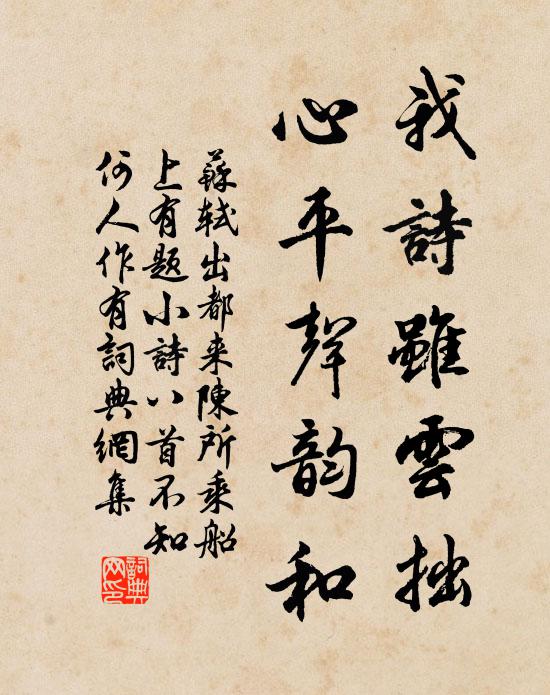 我詩雖雲拙
心平聲韵和
蘇軾出都来陳所乘船
上有題小詩八首不知
何人作有詞典網集
詞典
网印